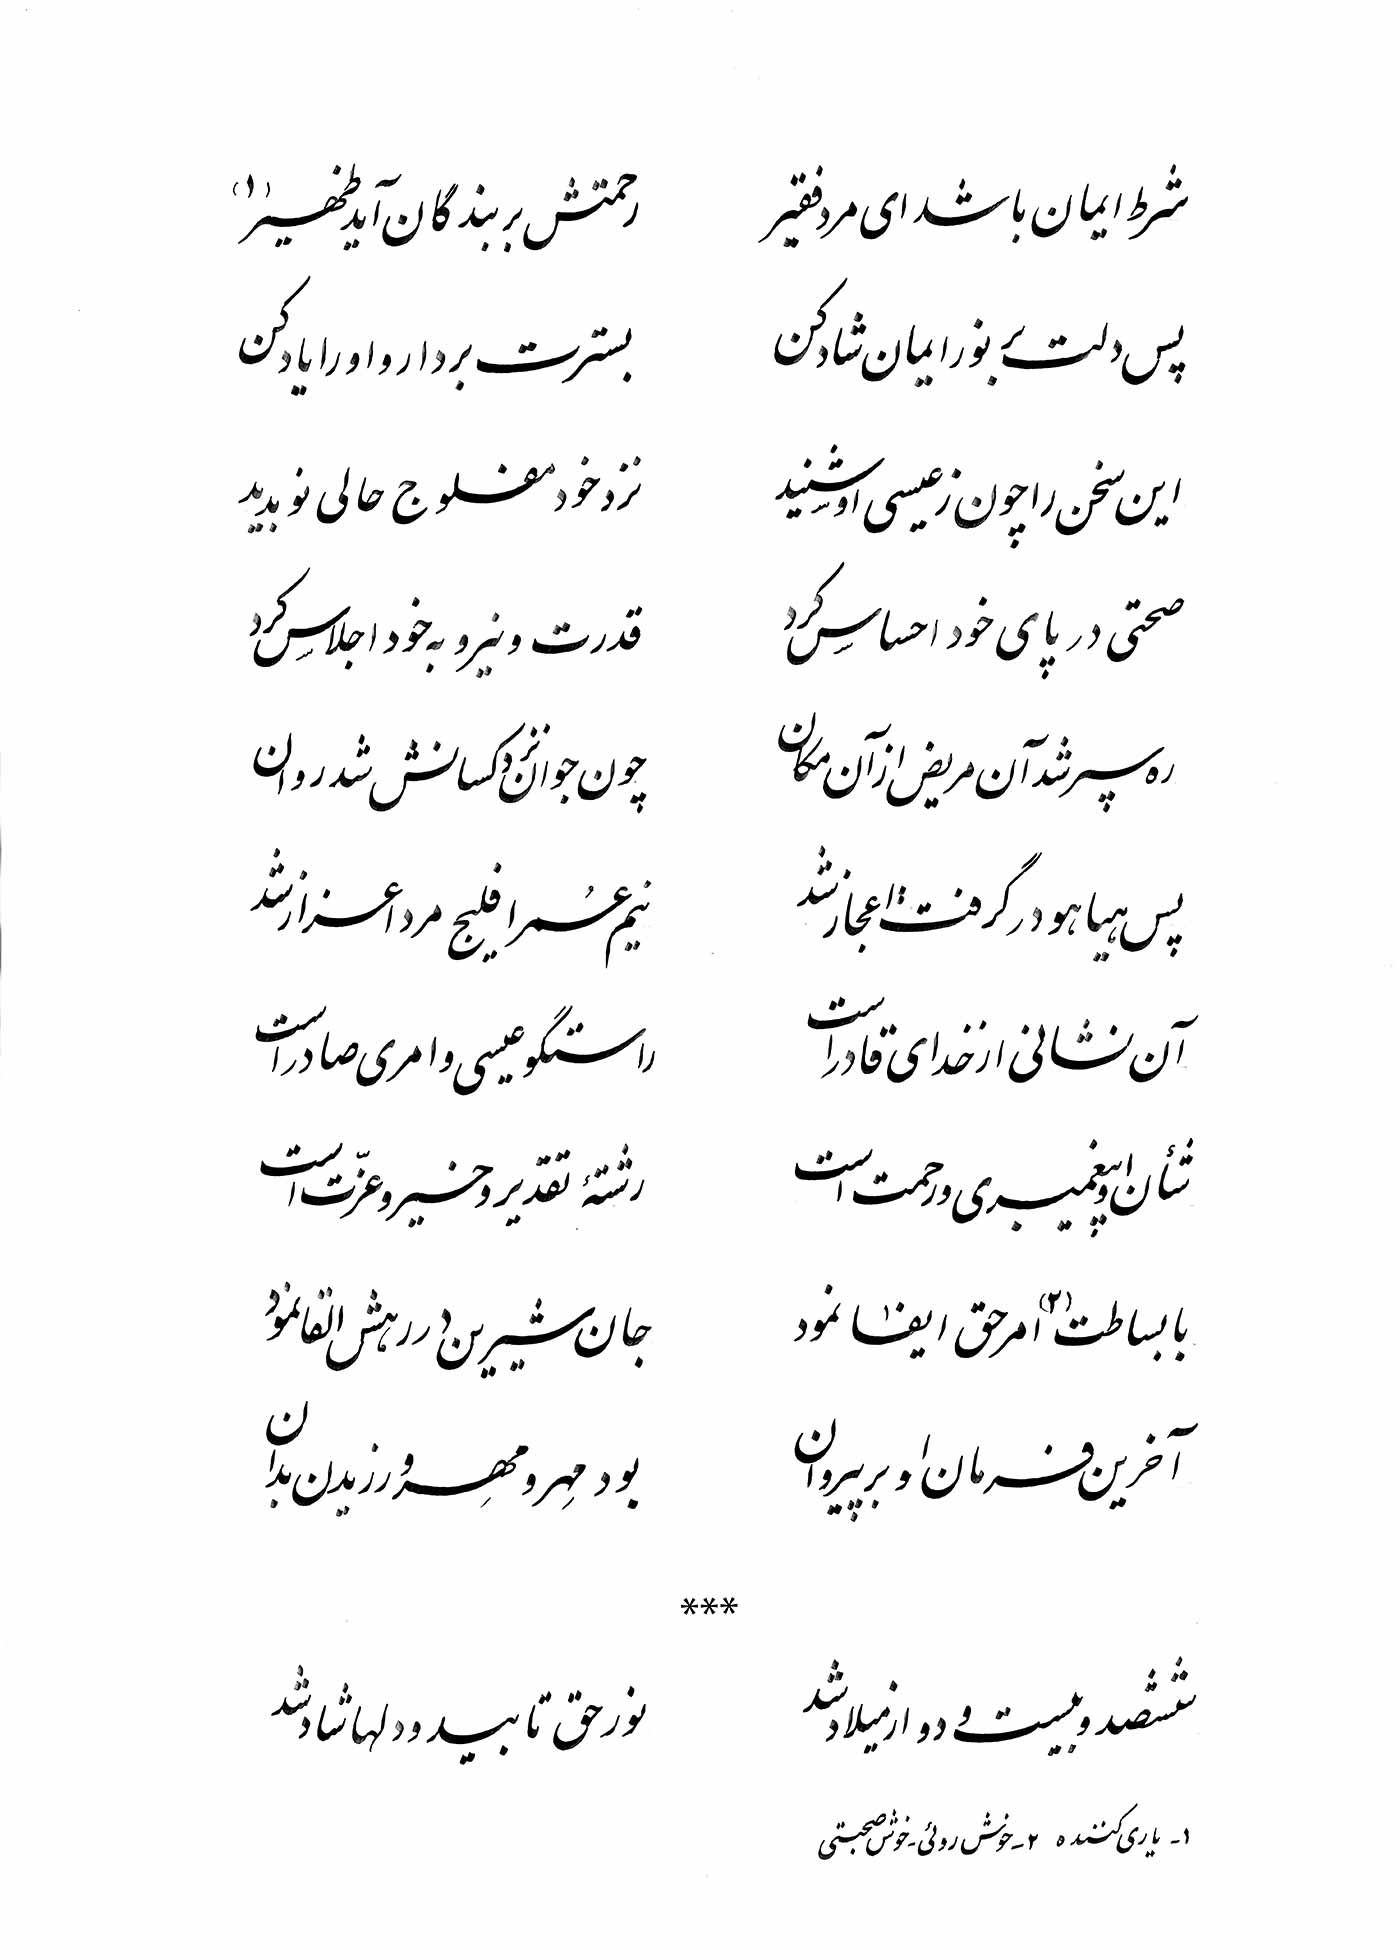 شرط ایمان باشد ای مرد فقیر رحمتش بر بندگان آید ظهیر (۱)
پس دلت بر نور ایمان شاد کن بسترت بردار و او را یاد کن
این سخن را چون ز عیسی او شنید نزد خود مفلوج حالی نو بدید
صحتی در پای خود احساس کرد قدرت و نیرو به خود اجلاس کرد
ره سپر شد آن مریض از آن مکان چون جوان نزد کسانش شد روان
پس هیاهو در گرفت و اعجاز شد نیم عُمر افلیج مرد اعزاز شد
آن نشانی از خدای قادر است راستگو عیسی و امری صادر است
شأن او پیغمبری و رحمت است رشتهٔ تقدیر و خیر و عزّت است
با بساطت (۲) امر حق ایفا نمود جان شیرین در رهش القا نمود
آخرین فرمان او بر پیروان بود مِهر و مِهر ورزیدن بدان
***
ششصد و بیست و دو از میلاد شد نور حق تابید و دلها شاد شد
۱- یاری کننده ۲- خوش روئی - خوش صحبتی